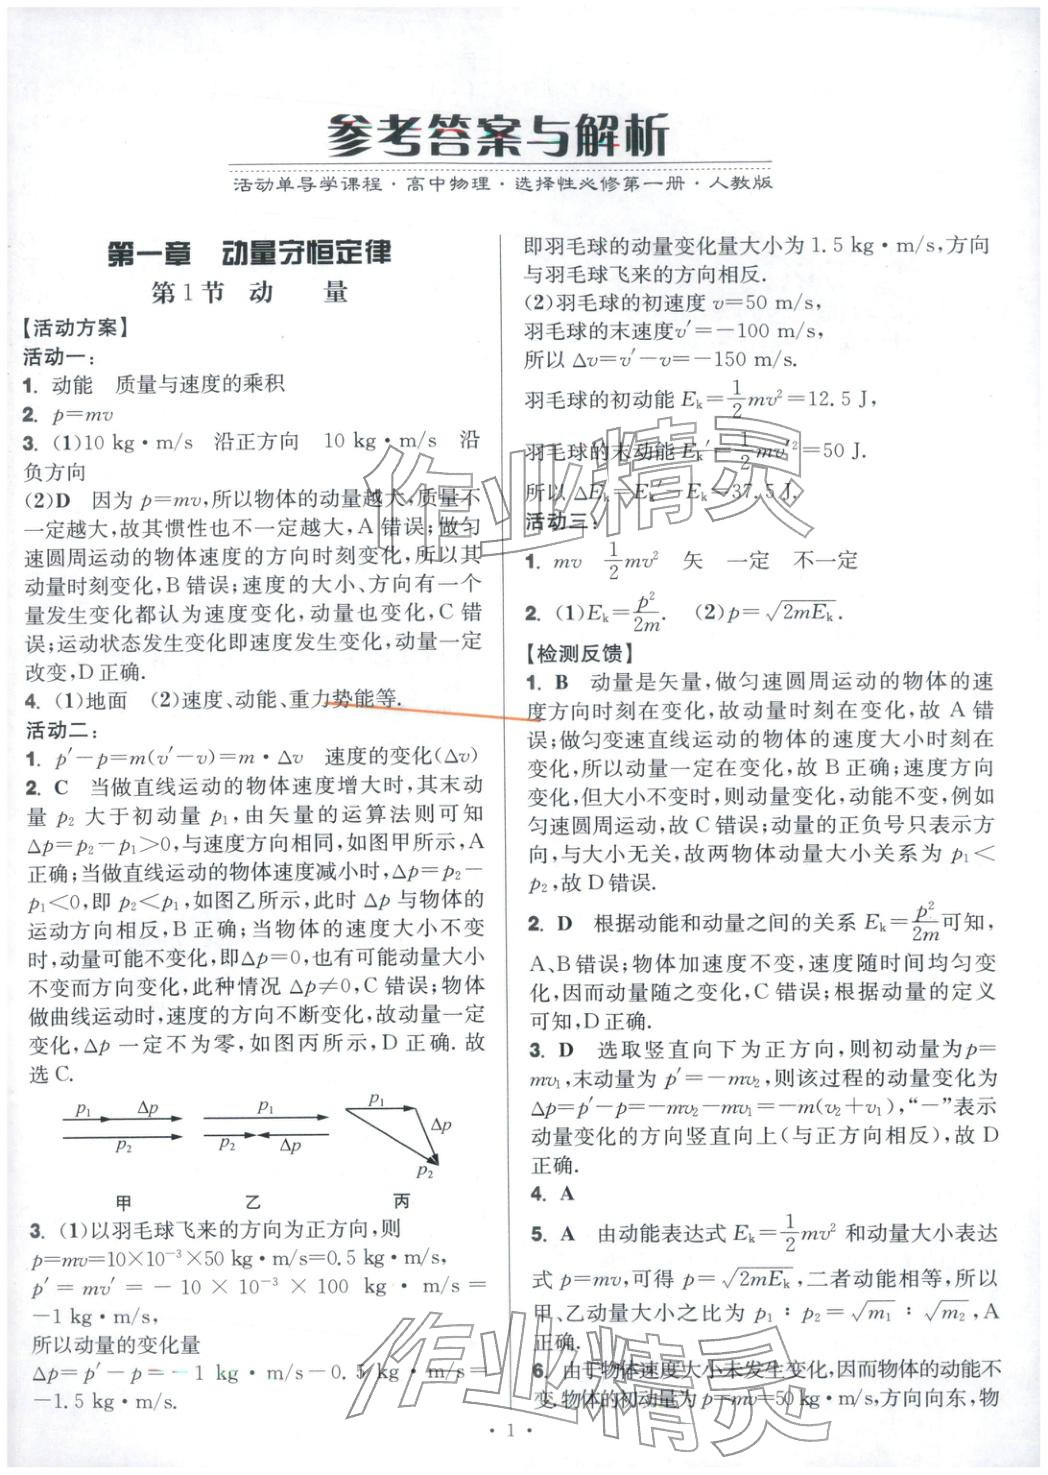 参考答案与解析
活动单导学课程·高中物理·选择性必修第一册·人教版
第一章 动量守恒定律
第1节 动 量
【活动方案】
活动一：
1. 动能 质量与速度的乘积
2. p=mv
3. (1)10 kg·m/s 沿正方向 10 kg·m/s 沿
负方向
(2)D 因为 p=mv,所以物体的动量越大,质量不
一定越大,故其惯性也不一定越大,A 错误;做匀
速圆周运动的物体速度的方向时刻变化,所以其
动量时刻变化,B 错误;速度的大小、方向有一个
量发生变化都认为速度变化,动量也变化,C 错
误;运动状态发生变化即速度发生变化,动量一定
改变,D 正确.
4. (1)地面 (2)速度、动能、重力势能等.
活动二：
1. p′-p=m(v′-v)=m·Δv 速度的变化(Δv)
2. C 当做直线运动的物体速度增大时,其末动
量 p₂ 大于初动量 p₁,由矢量的运算法则可知
Δp=p₂-p₁>0,与速度方向相同,如图甲所示,A
正确;当做直线运动的物体速度减小时,Δp=p₂-
p₁<0,即 p₂<p₁,如图乙所示,此时 Δp 与物体的
运动方向相反,B 正确;当物体的速度大小不变
时,动量可能不变化,即Δp=0,也有可能动量大小
不变而方向变化,此种情况 Δp≠0,C 错误;物体
做曲线运动时,速度的方向不断变化,故动量一定
变化,Δp 一定不为零,如图丙所示,D 正确. 故
选 C.
p₁ Δp p₂
p₁ p₂ Δp
p₁ Δp p₂
甲 乙 丙
3. (1)以羽毛球飞来的方向为正方向,则
p=mv=10×10⁻³×50 kg·m/s=0.5 kg·m/s,
p′ = mv′ = - 10 × 10⁻³ × 100 kg · m/s =
-1 kg·m/s,
所以动量的变化量
Δp= p′ - p = - 1 kg · m/s - 0.5 kg · m/s =
-1.5 kg·m/s.
即羽毛球的动量变化量大小为 1.5 kg·m/s,方向
与羽毛球飞来的方向相反.
(2)羽毛球的初速度 v=50 m/s,
羽毛球的末速度v′=-100 m/s,
所以 Δv=v′-v=-150 m/s.
羽毛球的初动能 Eₖ=1/2mv²=12.5 J,
羽毛球的末动能 Eₖ′=1/2mv′²=50 J.
所以 ΔEₖ=Eₖ′-Eₖ=37.5 J.
活动三：
1. mv 1/2mv² 矢 一定 不一定
2. (1)Eₖ=p²/2m. (2)p=√(2mEₖ).
【检测反馈】
1. B 动量是矢量,做匀速圆周运动的物体的速
度方向时刻在变化,故动量时刻在变化,故 A 错
误;做匀变速直线运动的物体的速度大小时刻在
变化,所以动量一定在变化,故 B 正确;速度方向
变化,但大小不变时,则动量变化,动能不变,例如
匀速圆周运动,故 C 错误;动量的正负号只表示方
向,与大小无关,故两物体动量大小关系为 p₁<
p₂,故 D 错误.
2. D 根据动能和动量之间的关系 Eₖ=p²/2m可知,
A、B 错误;物体加速度不变,速度随时间均匀变
化,因而动量随之变化,C 错误;根据动量的定义
可知,D 正确.
3. D 选取竖直向下为正方向,则初动量为p=
mv₁,末动量为 p′=-mv₂,则该过程的动量变化为
Δp=p′-p=-mv₂-mv₁=-m(v₂+v₁),“-”表示
动量变化的方向竖直向上(与正方向相反),故 D
正确.
4. A
5. A 由动能表达式 Eₖ=1/2mv² 和动量大小表达
式 p=mv,可得 p=√(2mEₖ),二者动能相等,所以
甲、乙动量大小之比为 p₁∶p₂=√m₁∶√m₂,A
正确.
6. 由于物体速度大小未发生变化,因而物体的动能不
变.物体的初动量为 p=mv=50 kg·m/s,方向向东,物
· 1 ·
作业精灵
作业精灵